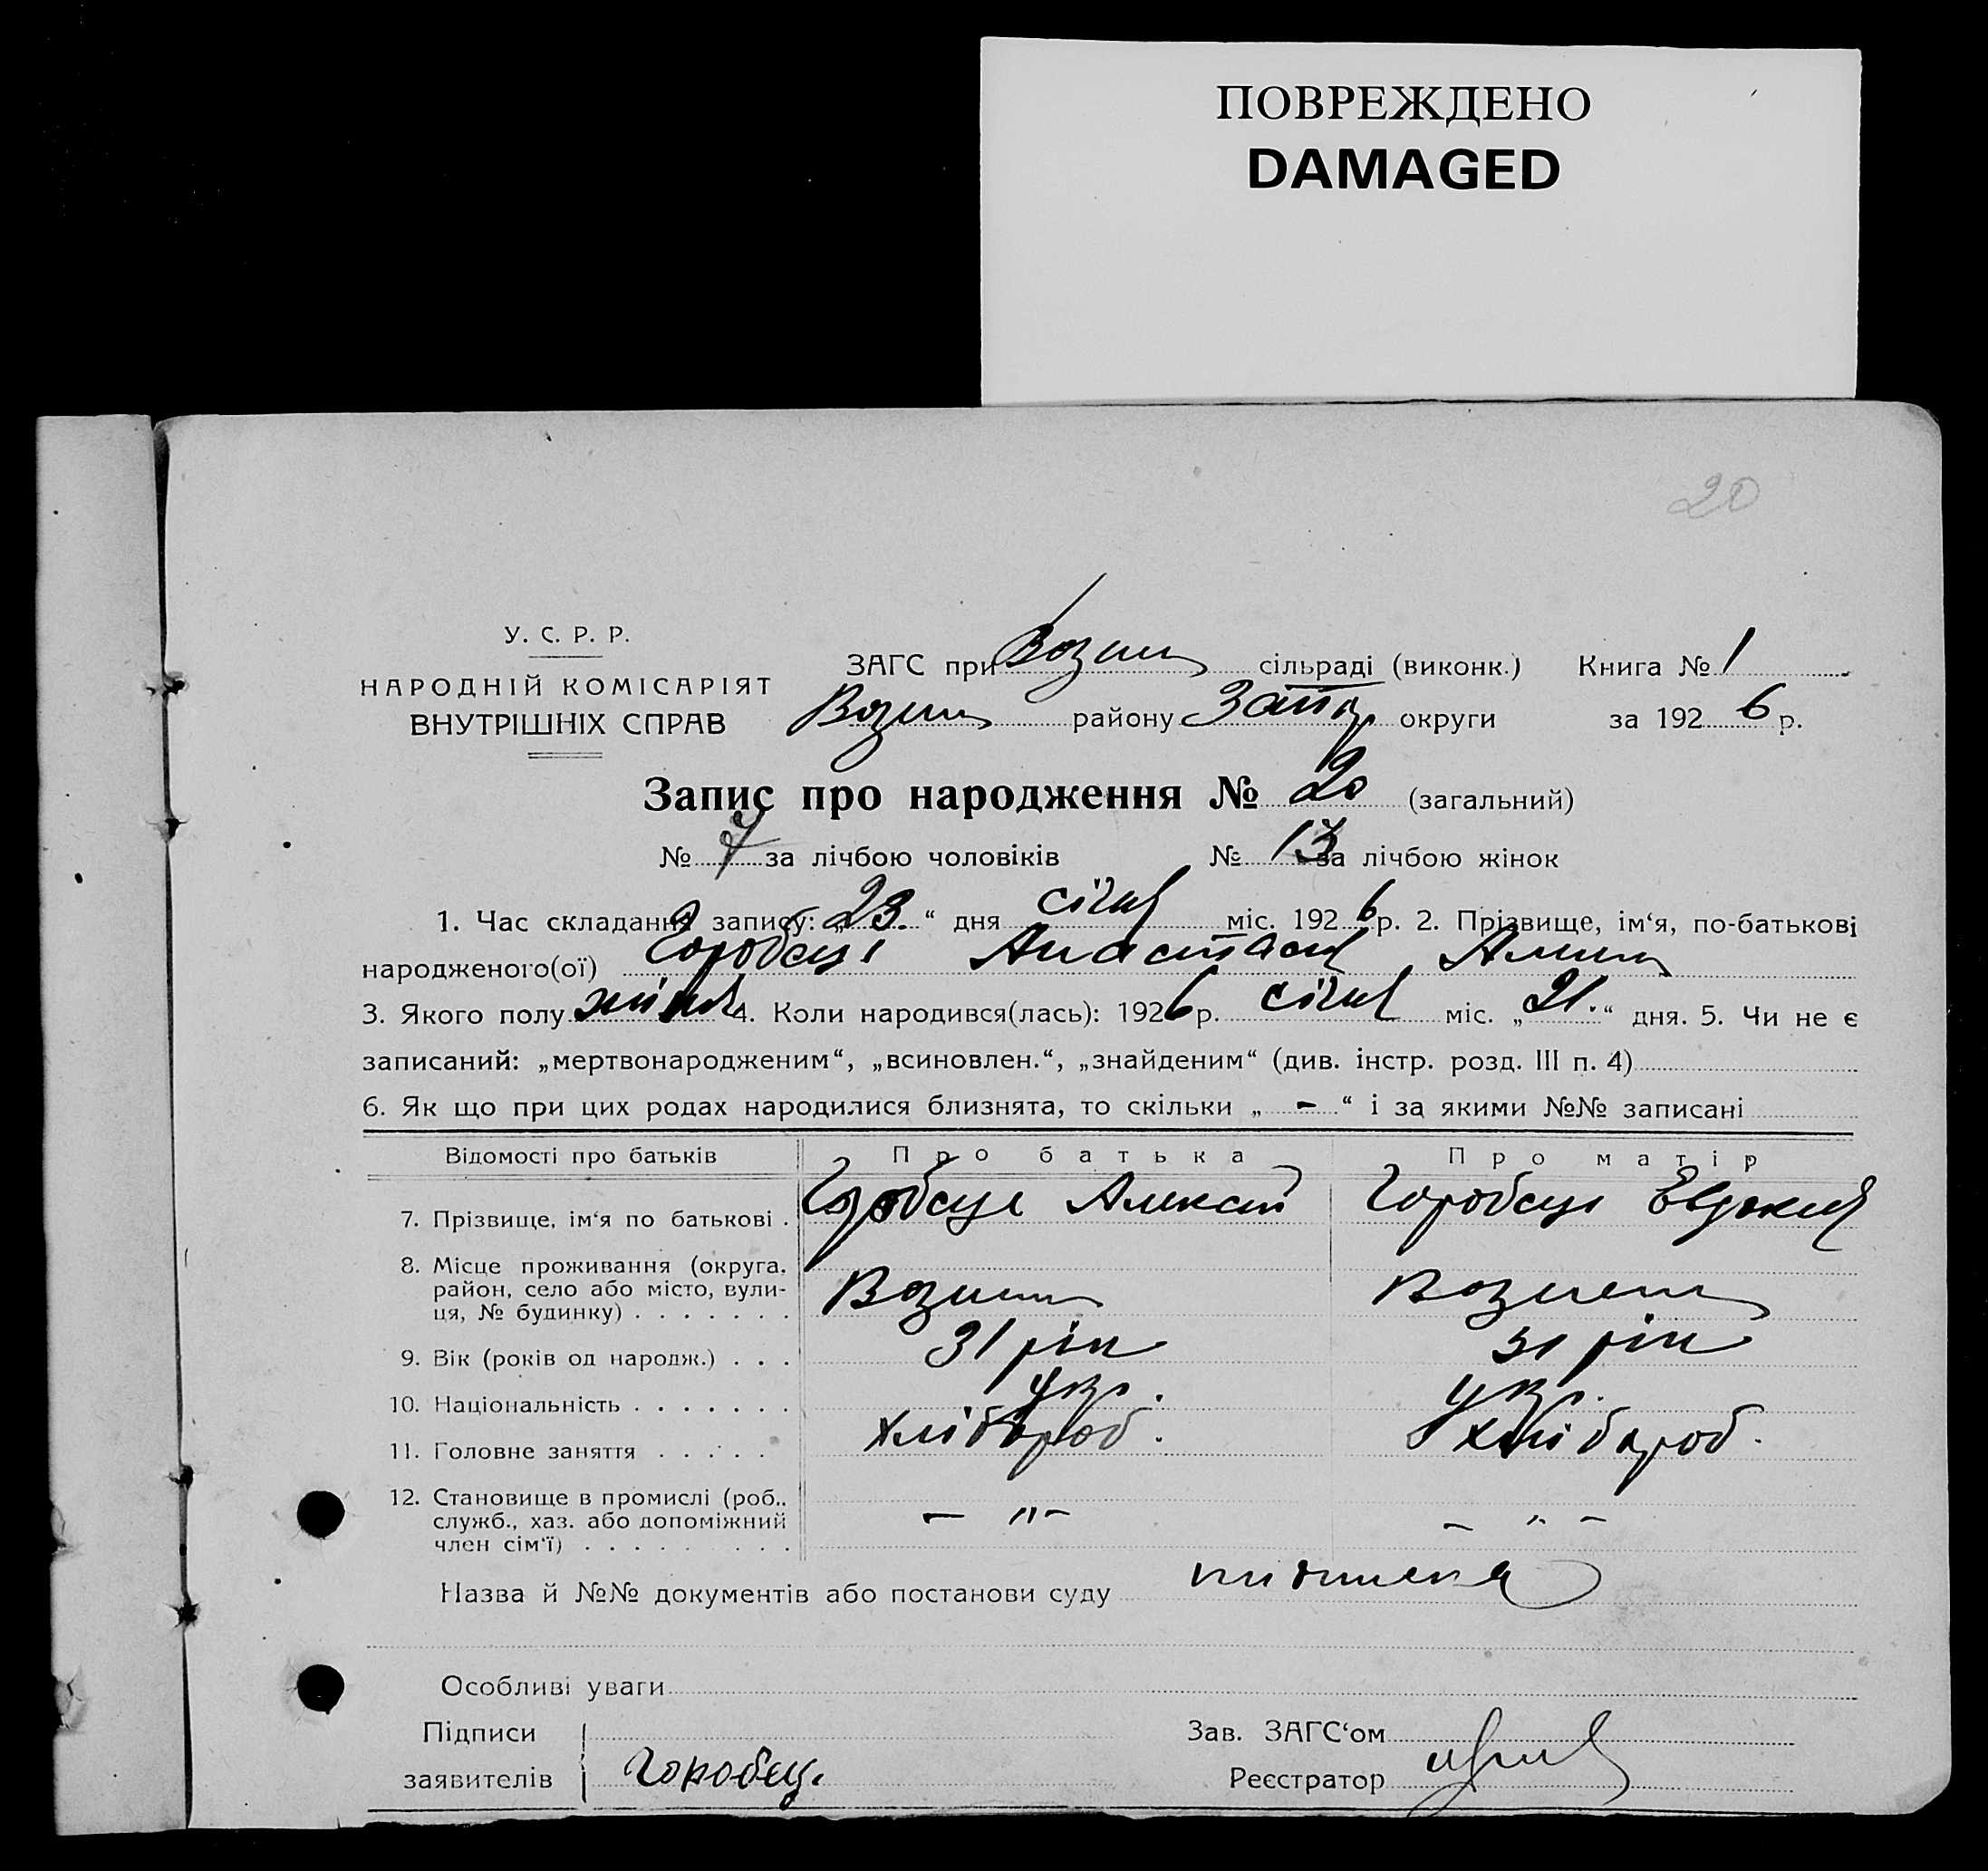 ПОВРЕЖДЕНО
DAMAGED
20
У. С. Р. Р.
НАРОДНІЙ КОМІСАРІЯТ
ВНУТРІШНІХ СПРАВ
ЗАГС при сільраді (виконк.) Книга № 1
району Запор округи за 1926 р.
Запис про народження № 20 (загальний)
№ 7 за лічбою чоловіків № 13 за лічбою жінок
1. Час складання запису: „23.“ дня січня міс. 1926 р. 2. Прізвище, ім‘я, по-батькові
народженого(ої) Горобець Анастасія
3. Якого полу жіноч 4. Коли народився(лась): 1926 р. січня міс. „21.“ дня. 5. Чи не є
записаний: „мертвонародженим“, „всиновлен.“, „знайденим“ (див. інстр. розд. III п. 4)
6. Як що при цих родах народилися близнята, то скільки „ - “ і за якими №№ записані
Відомості про батьків Про батька Про матір
7. Прізвище, ім‘я по батькові . Горобець Алексій Горобець Евдокия
8. Місце проживання (округа, район, село або місто, вули-
ця, № будинку) . . . . . . .
9. Вік (років од народж.) . . . 31 рік 31 рік
10. Національність . . . . . . . укр. укр.
11. Головне заняття . . . . . хлібороб. хлібороб.
12. Становище в промислі (роб.,
служб., хаз. або допоміжний
член сім‘ї) . . . . . . . . . — „ — — „ —
Назва й №№ документів або постанови суду
Особливі уваги
Підписи Зав. ЗАГС‘ом
заявителів Горобець Реєстратор